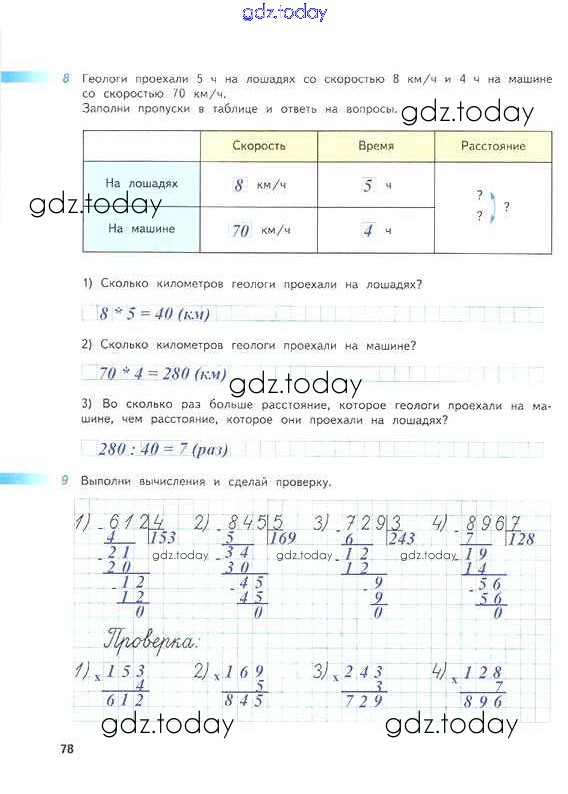 gdz.today
8 Геологи проехали 5 ч на лошадях со скоростью 8 км/ч и 4 ч на машине
со скоростью 70 км/ч.
Заполни пропуски в таблице и ответь на вопросы.
gdz.today
Скорость Время Расстояние
На лошадях 8 км/ч 5 ч ?
gdz.today
? ?
На машине 70 км/ч 4 ч
1) Сколько километров геологи проехали на лошадях?
8 * 5 = 40 (км)
2) Сколько километров геологи проехали на машине?
70 * 4 = 280 (км)
gdz.today
3) Во сколько раз больше расстояние, которое геологи проехали на ма-
шине, чем расстояние, которое они проехали на лошадях?
280 : 40 = 7 (раз)
9 Выполни вычисления и сделай проверку.
1) - 612 4 2) - 845 5 3) - 729 3 4) - 896 7
4 153 5 169 6 243 7 128
- 21 - 34 - 12 - 19
gdz.today gdz.today gdz.today
20 30 12 14
- 12 - 45 - 9 - 56
12 45 9 56
0 0 0 0
Проверка:
1) x 153 2) x 169 3) x 243 4) x 128
4 5 3 7
612 845 729 896
gdz.today gdz.today
78